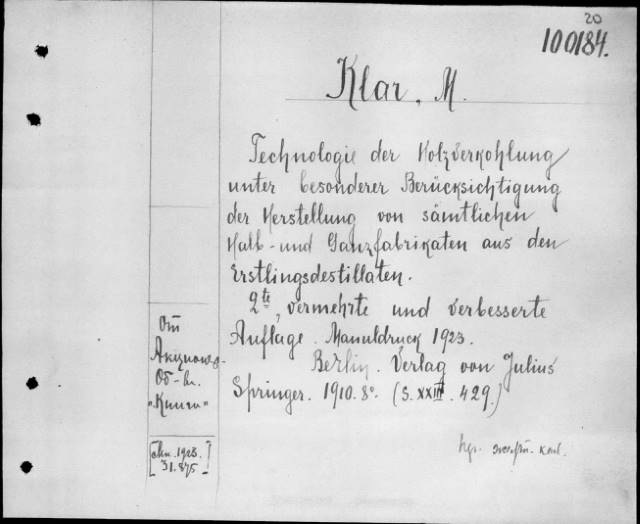 20
100184.
Klar, M.
Technologie der Holzverkohlung
unter besonderer Berücksichtigung
der Herstellung von sämtlichen
Halb- und Ganzfabrikaten aus den
Erstlingsdestillaten.
2te, vermehrte und verbesserte
Auflage. Manuldruck 1923.
Berlin. Verlag von Julius
Springer. 1910. 8°. (S. XXIII. 429.)
От
Акционер.
Об-ва
"Книга"
1923.
31.875]